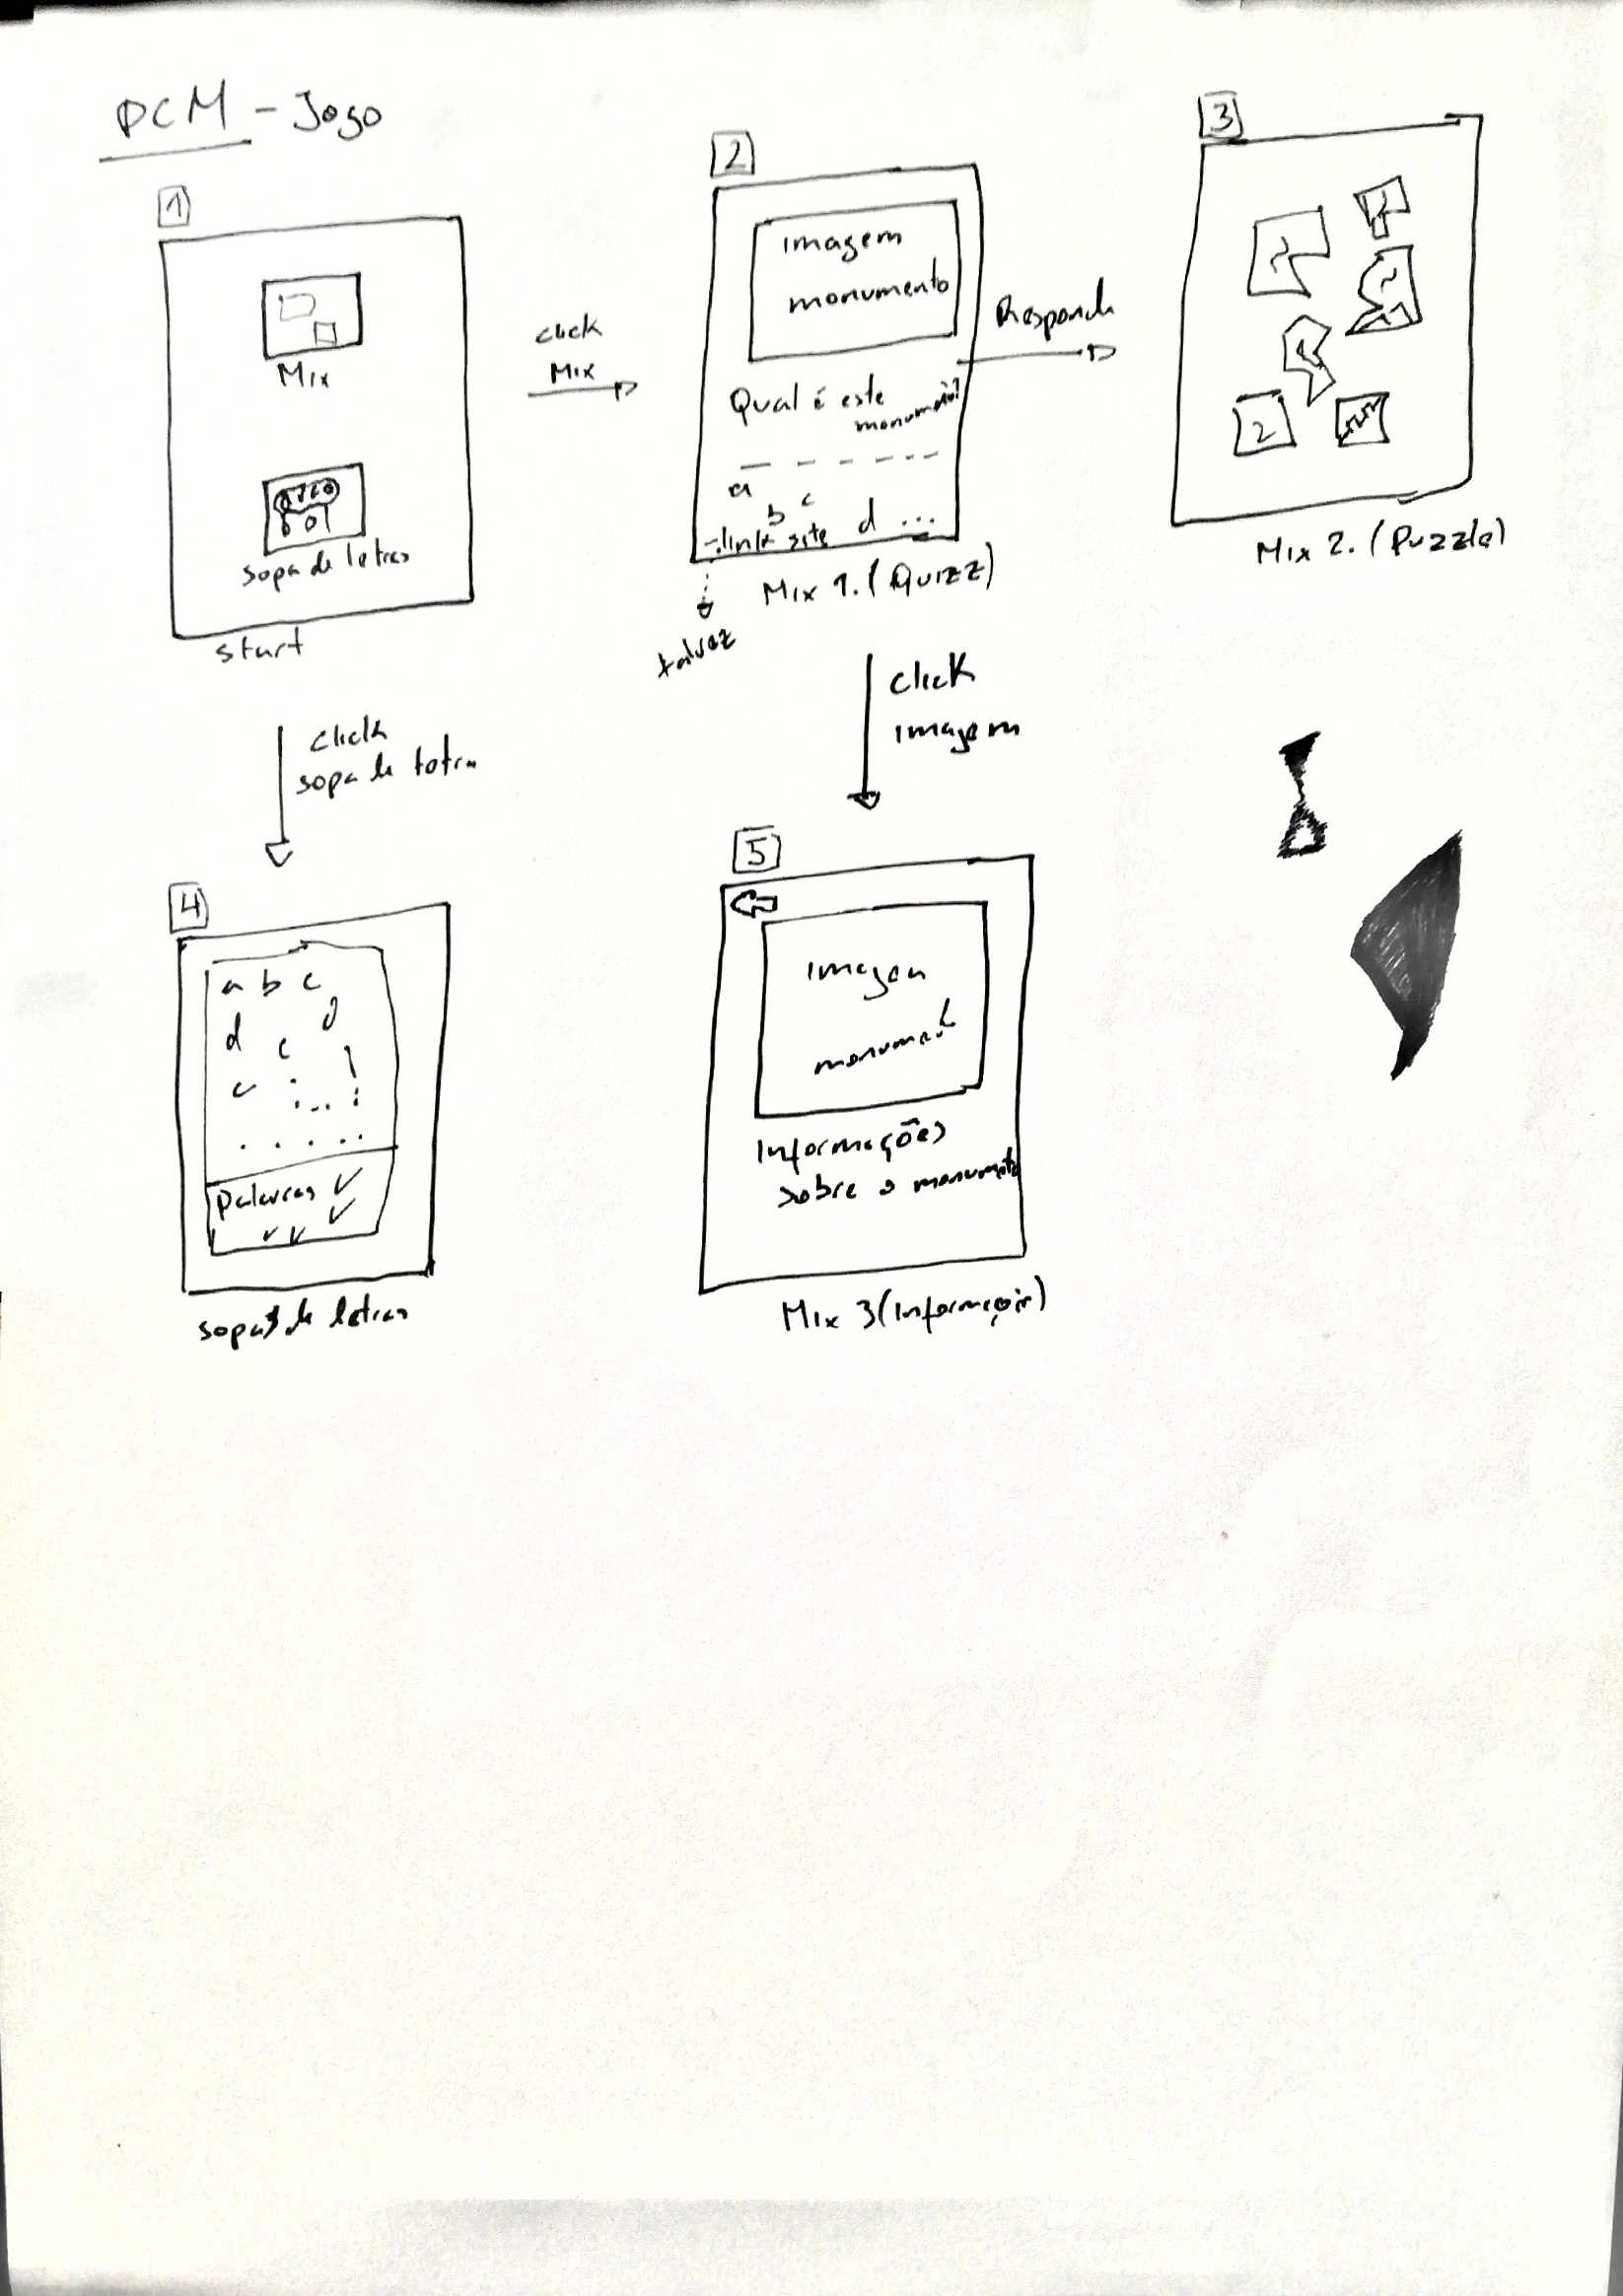 PCM - Jogo
1
Mix
sopa de letras
start
click
Mix
2
imagem
monumento
Qual é este
monumento?
a
b c
d ...
- link site
talvez
Mix 1. (Quizz)
Responde
3
2
Mix 2. (Puzzle)
click
sopa de letras
click
imagem
4
a b c
d e g
c
Palavras ✓
✓ ✓ ✓
sopas de letras
5
imagem
monumento
Informações
sobre o monumento
Mix 3 (Informações)